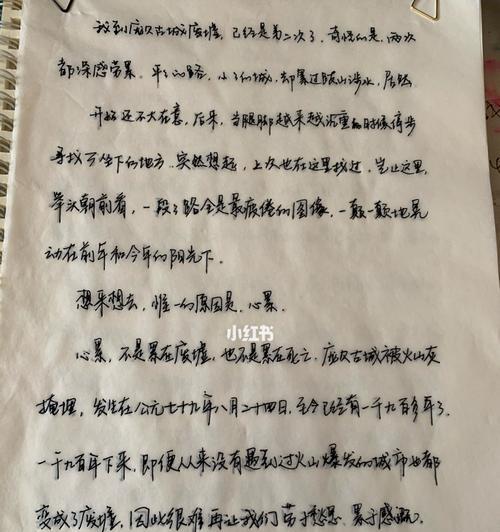 我到庞贝古城废墟，已经是第二次了，奇怪的是，两次
都深感劳累，平平的路，小小的城，却累过跋山涉水，居然
开始还不大在意，后来，当腿脚越来越沉重的时候停步
寻找可坐下的地方，突然想起，上次也在这里找过，岂止这里，
举头朝前看，一段段路全是最疲倦的图像，一颠一颠地晃
动在前年和今年的阳光下．
想来想去，惟一的原因是，心累．
小红书
心累，不是累在废墟，也不是累在死亡．庞贝古城被火山灰
掩埋，发生在公元七十九年八月二十四日，至今已经有一千九百多年了．
一千九百年下来，即便从来没有遇到过火山爆发的城市也都
变成了废墟，因此很难再让我们劳于愁思，累于感慨．